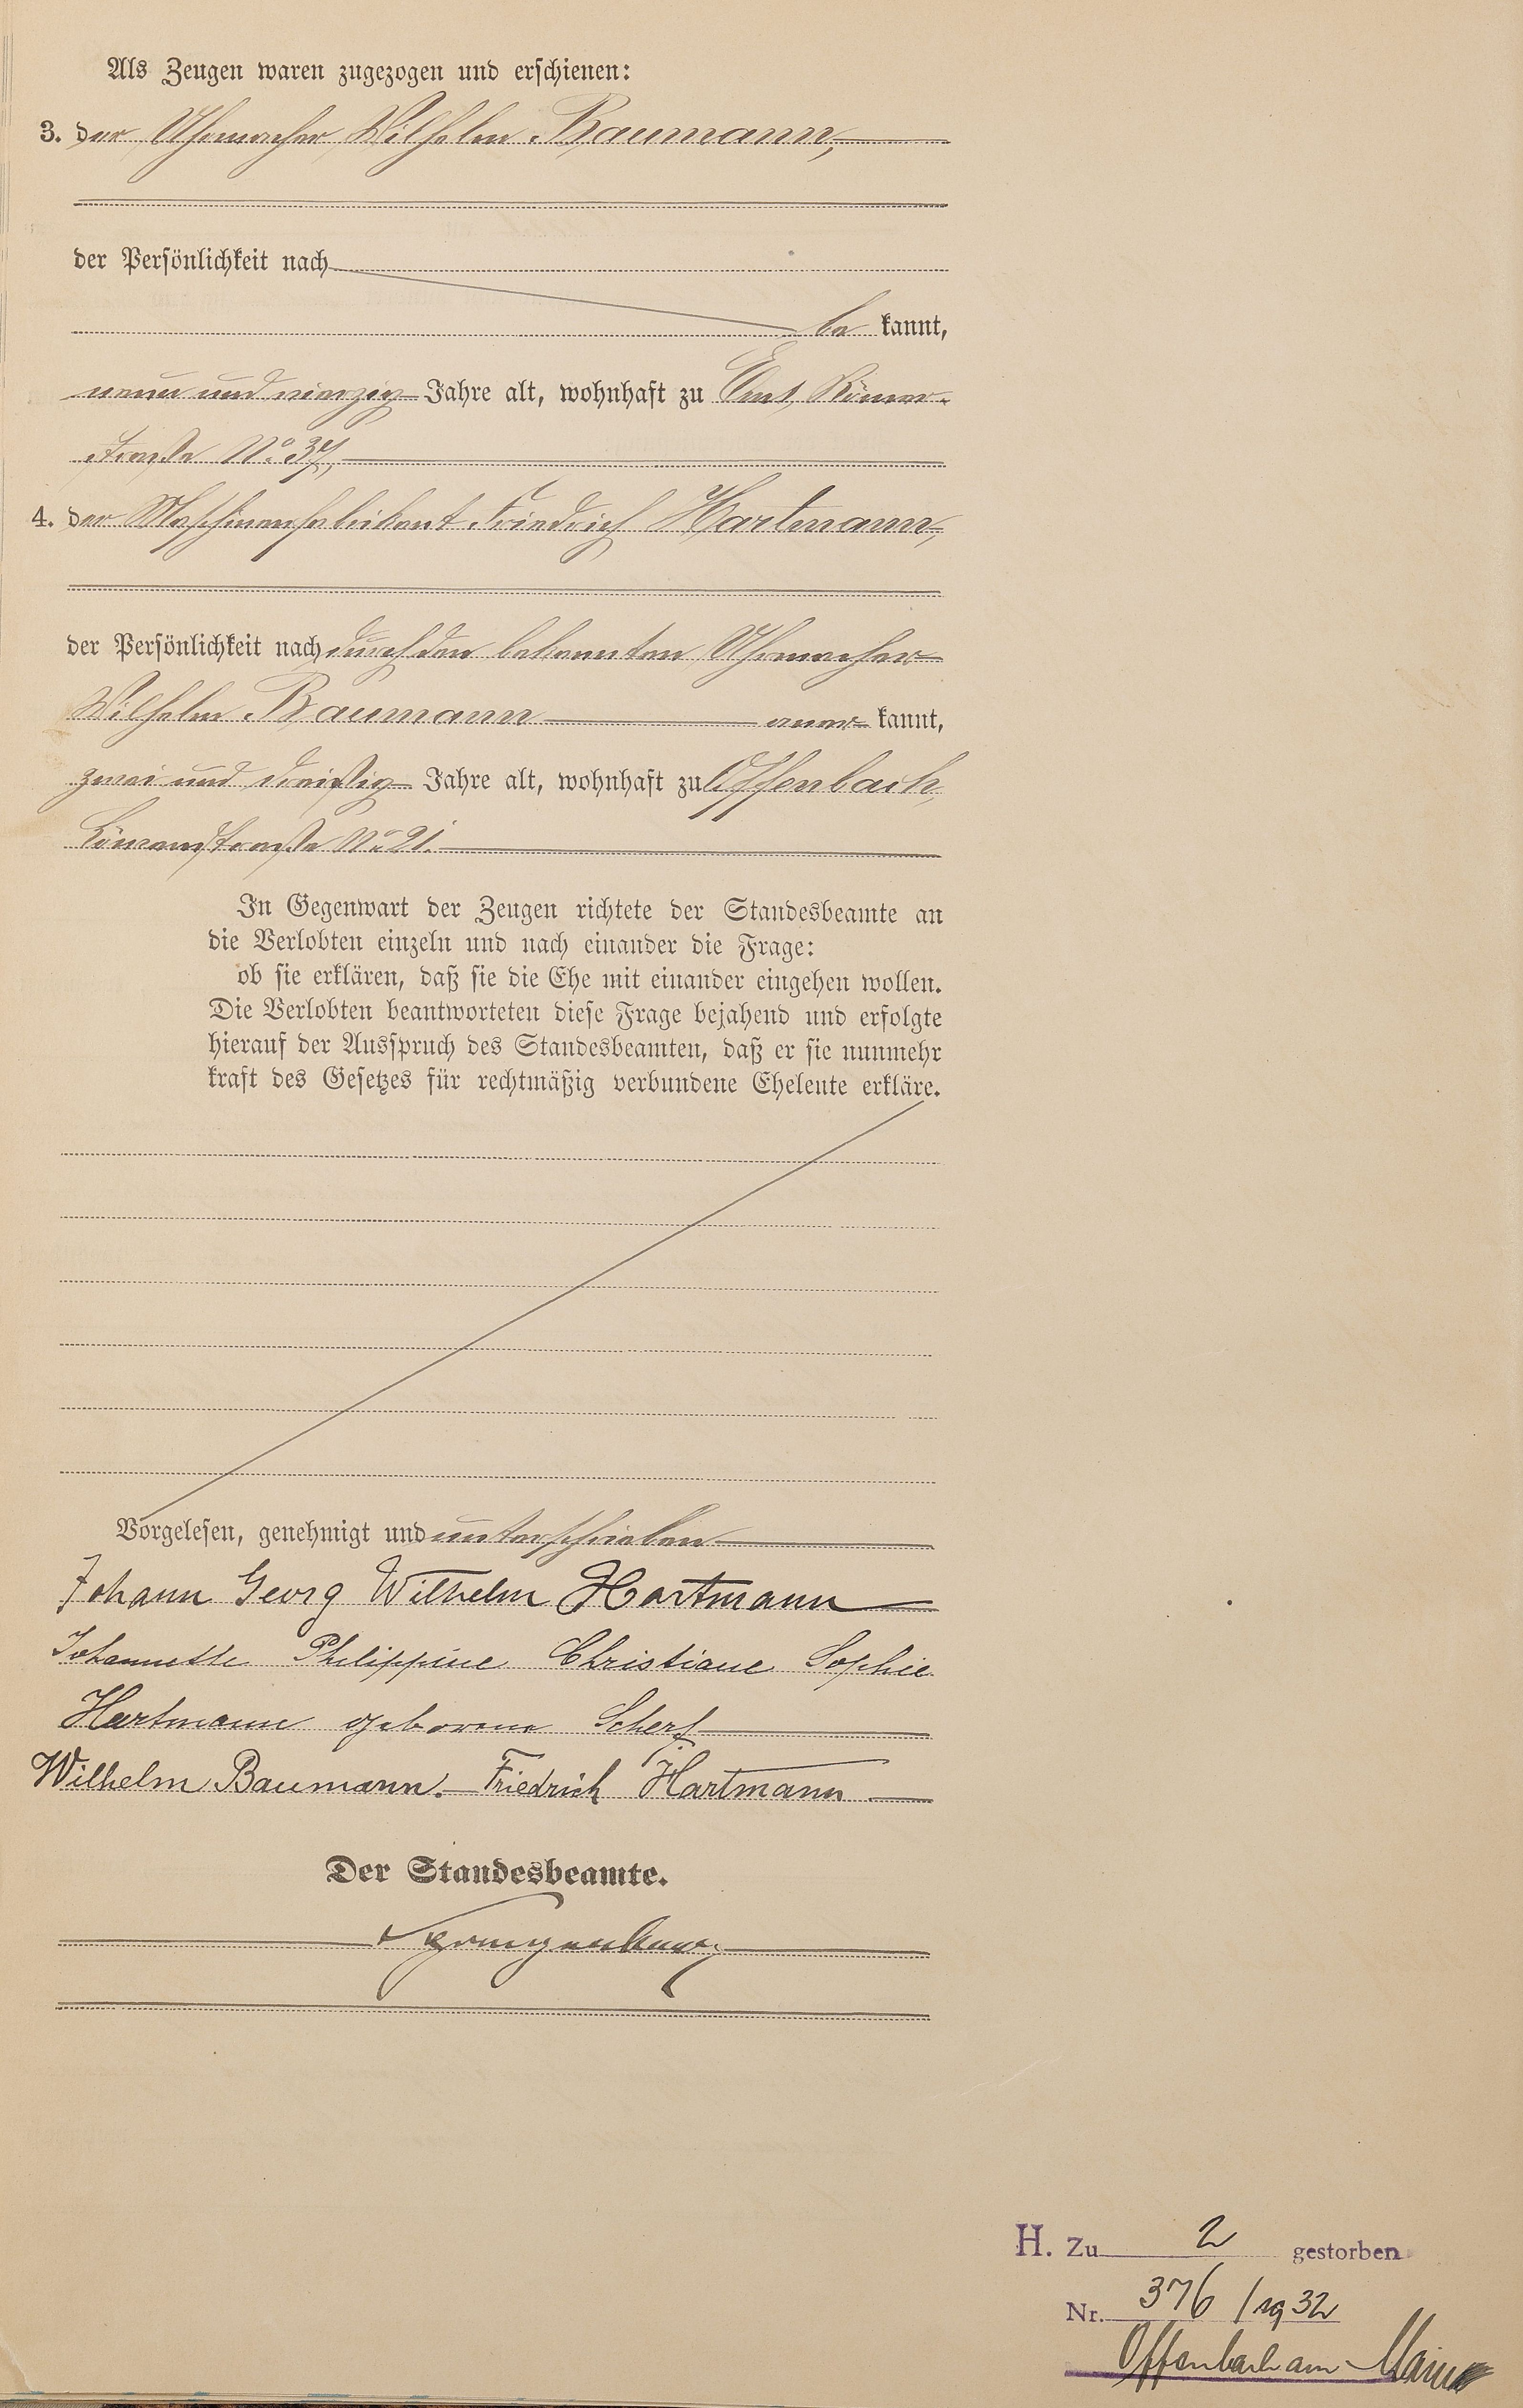 Als Zeugen waren zugezogen und erschienen:
3. der Uhrmacher Wilhelm Baumann,
der Persönlichkeit nach
be kannt,
neun und vierzig Jahre alt, wohnhaft zu Ems, Römer-
straße No. 37,
4. der Maschinenfabrikant Friedrich Hartmann,
der Persönlichkeit nach durch den bekannten Uhrmacher
Wilhelm Baumann aner kannt,
zwei und dreißig Jahre alt, wohnhaft zu Offenbach,
Löwenstraße No. 21.
In Gegenwart der Zeugen richtete der Standesbeamte an
die Verlobten einzeln und nach einander die Frage:
ob sie erklären, daß sie die Ehe mit einander eingehen wollen.
Die Verlobten beantworteten diese Frage bejahend und erfolgte
hierauf der Ausspruch des Standesbeamten, daß er sie nunmehr
kraft des Gesetzes für rechtmäßig verbundene Eheleute erkläre.
Vorgelesen, genehmigt und unterschrieben
Johann Georg Wilhelm Hartmann
Johannette Philippine Christiane Sophie
Hartmann geborene Scherf
Wilhelm Baumann. Friedrich Hartmann
Der Standesbeamte.
H. Zu 2 gestorben
Nr. 376 / 1932
Offenbach am Main